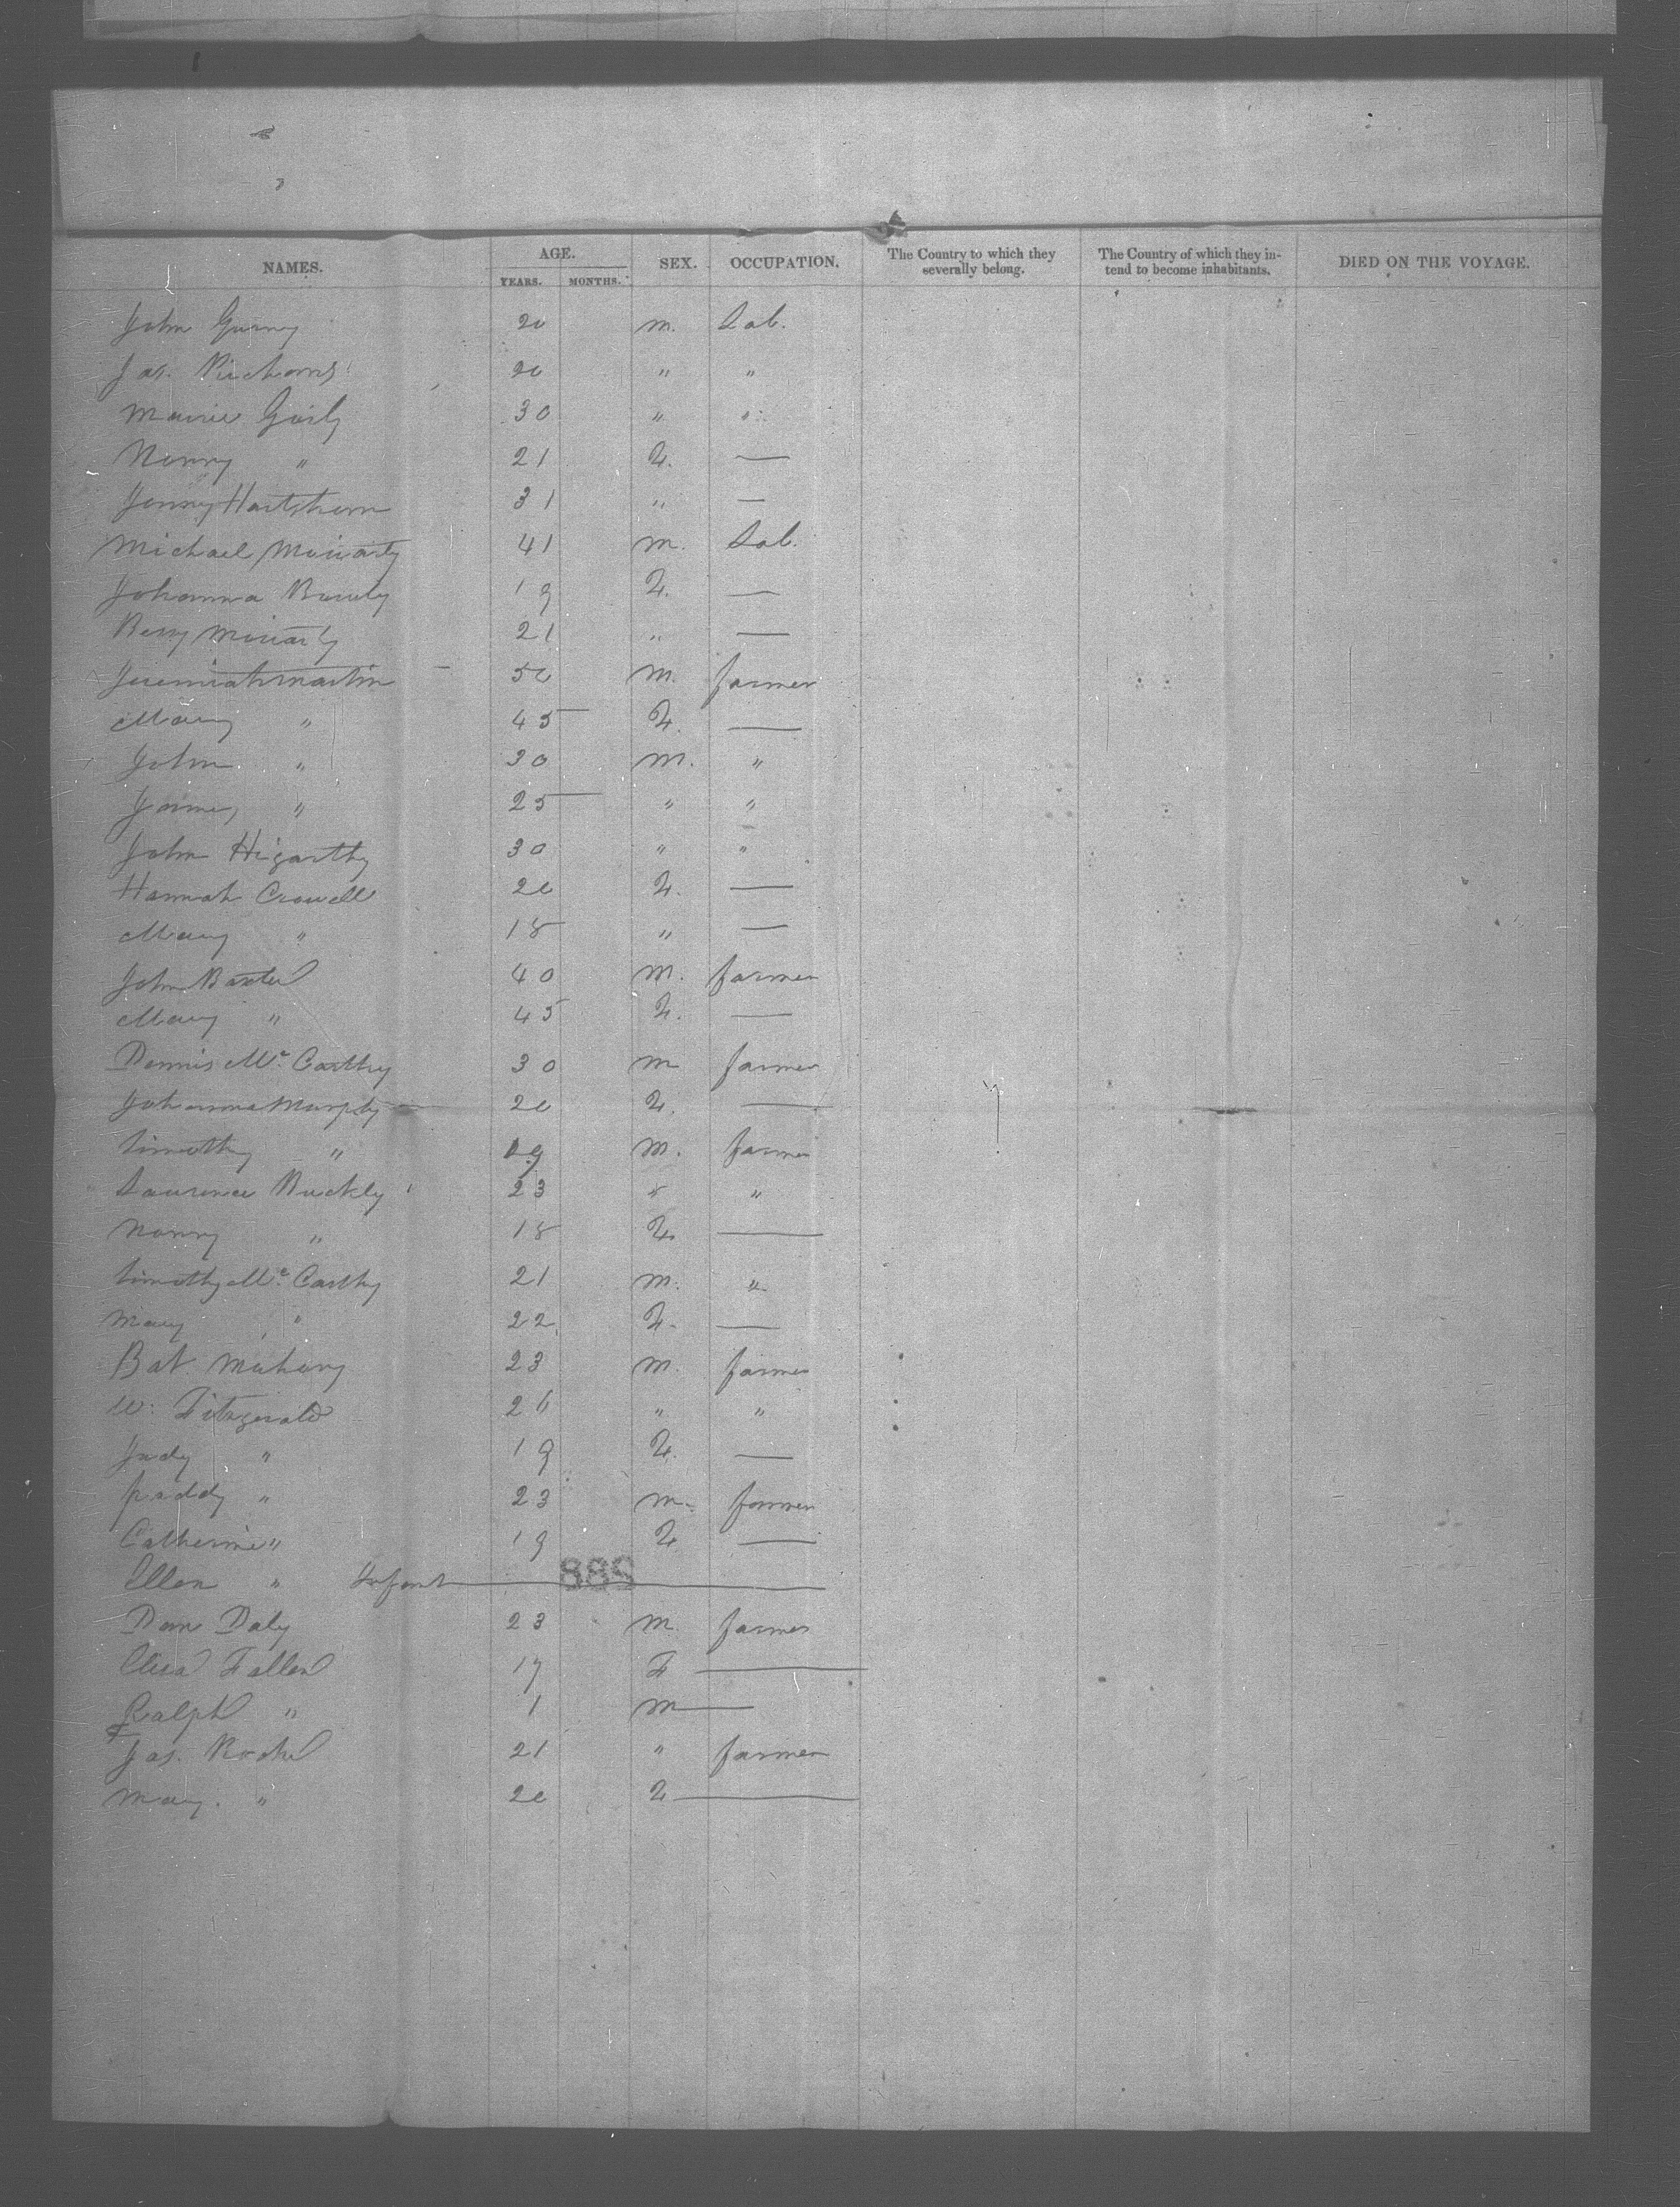 NAMES. AGE. YEARS. MONTHS. SEX. OCCUPATION. The Country to which they severally belong. The Country of which they intend to become inhabitants. DIED ON THE VOYAGE.
John 20 m. Lab.
Jas. 20 " "
30 " "
" 21 F. —
Jenny Hartshorn 31 " —
Michael Moriarty 41 m. Lab.
Johanna 19 F. —
Bessy Moriarty 21 " —
Jeremiah Martin 50 m. farmer
Mary " 45 F. —
John " 30 m. "
James " 25 " "
John Higarthy 30 " "
Hannah Crowell 20 F. —
Mary " 18 " —
John Baxter 40 m. farmer
Mary " 45 F. —
Dennis Mc. Carthy 30 m farmer
Johanna Murphy 20 F. —
timothy " 19 m. farmer
Laurence Buckly 23 " "
" 18 F. —
timothy Mc. Carthy 21 m. "
Mary " 22 F. —
Bat. Mahony 23 m. farmer
W. Fitzgerald 26 " "
Judy " 19 F. —
paddy " 23 m. farmer
Catherine " 19 F —
Ellen " Infant —
889
Dan Daly 23 m. farmer
Fallen 17 F —
Ralph " 1 m —
Jas. Roche 21 " farmer
Mary. " 20 F —